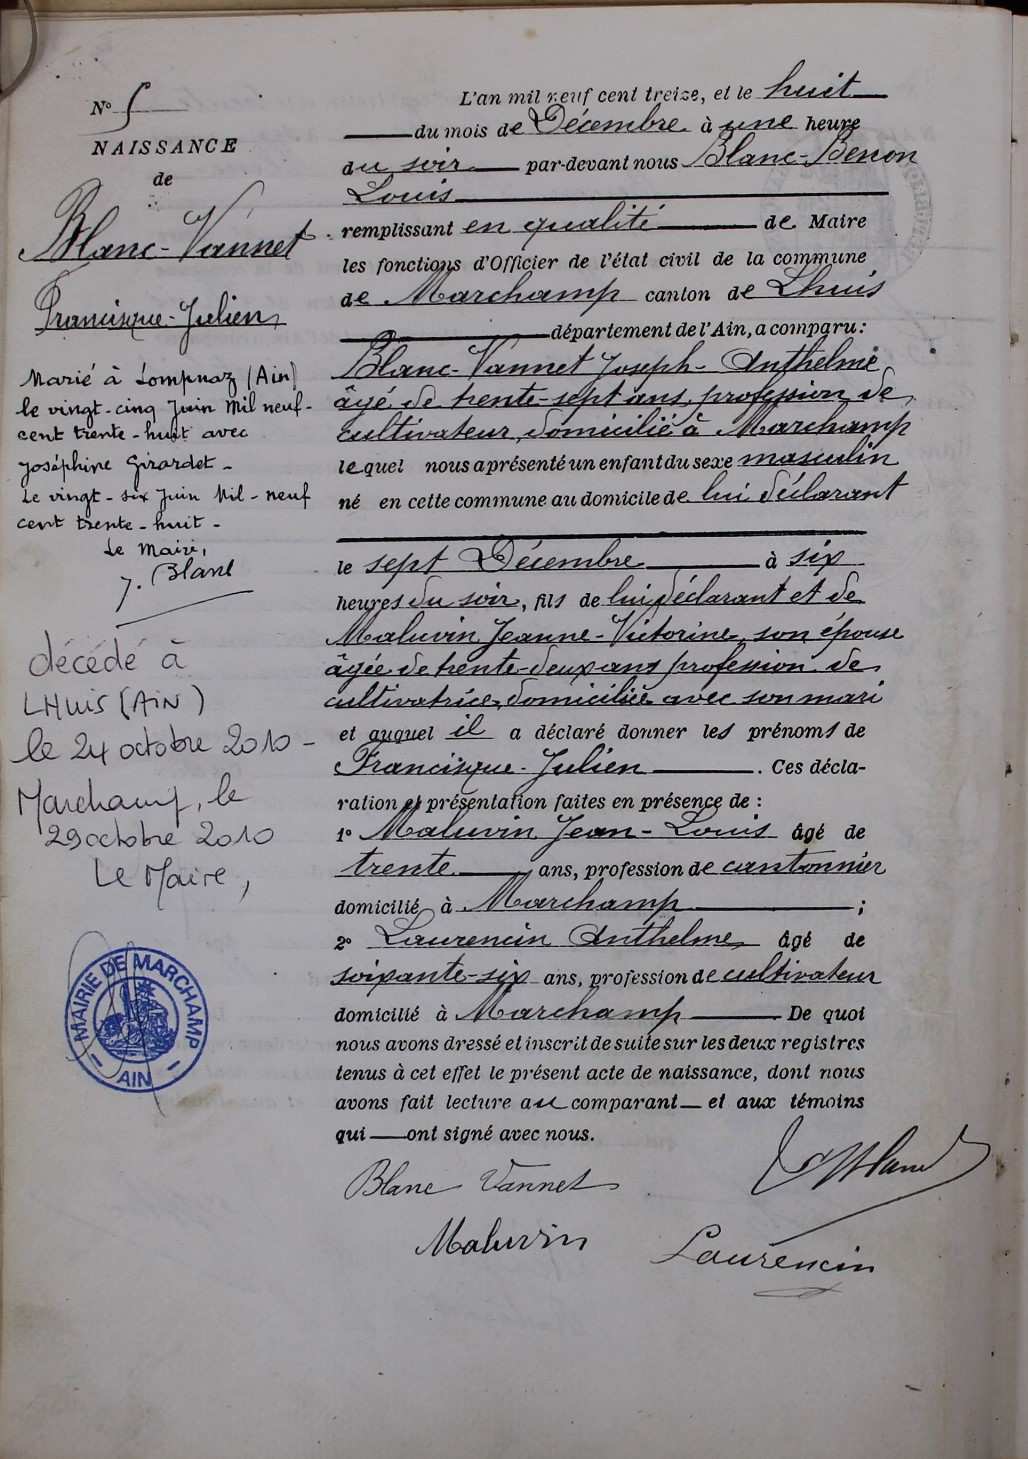 N° 5
NAISSANCE
de
Blanc-Vannet
Francisque-Julien
Marié à Lompnaz (Ain)
le vingt-cinq Juin Mil neuf-
cent trente-huit avec
Joséphine Girardet-
Le vingt-six Juin Mil-neuf
cent trente-huit-
Le Maire,
J. Blanc
décédé à
LHuis (Ain)
le 24 octobre 2010-
Marchamp, le
29 octobre 2010
Le Maire,
MAIRIE DE MARCHAMP
- AIN -
L'an mil neuf cent treize, et le huit
du mois de Décembre à une heure
du soir par-devant nous Blanc-Benon
Louis
remplissant en qualité de Maire
les fonctions d'Officier de l'état civil de la commune
de Marchamp canton de Lhuis
département de l'Ain, a comparu :
Blanc-Vannet Joseph-Anthelme
âgé de trente-sept ans, profession de
cultivateur, domicilié à Marchamp
lequel nous a présenté un enfant du sexe masculin
né en cette commune au domicile de lui déclarant
le sept Décembre à six
heures du soir, fils de lui déclarant et de
Maluvin Jeanne-Victorine, son épouse
âgée de trente-deux ans profession de
cultivatrice, domiciliée avec son mari
et auquel il a déclaré donner les prénoms de
Francisque-Julien. Ces décla-
ration et présentation faites en présence de :
1° Maluvin Jean-Louis âgé de
trente ans, profession de cantonnier
domicilié à Marchamp ;
2° Laurencin Anthelme, âgé de
soixante-six ans, profession de cultivateur
domicilié à Marchamp De quoi
nous avons dressé et inscrit de suite sur les deux registres
tenus à cet effet le présent acte de naissance, dont nous
avons fait lecture au comparant et aux témoins
qui ont signé avec nous.
Blanc Vannet
Maluvin
Laurencin